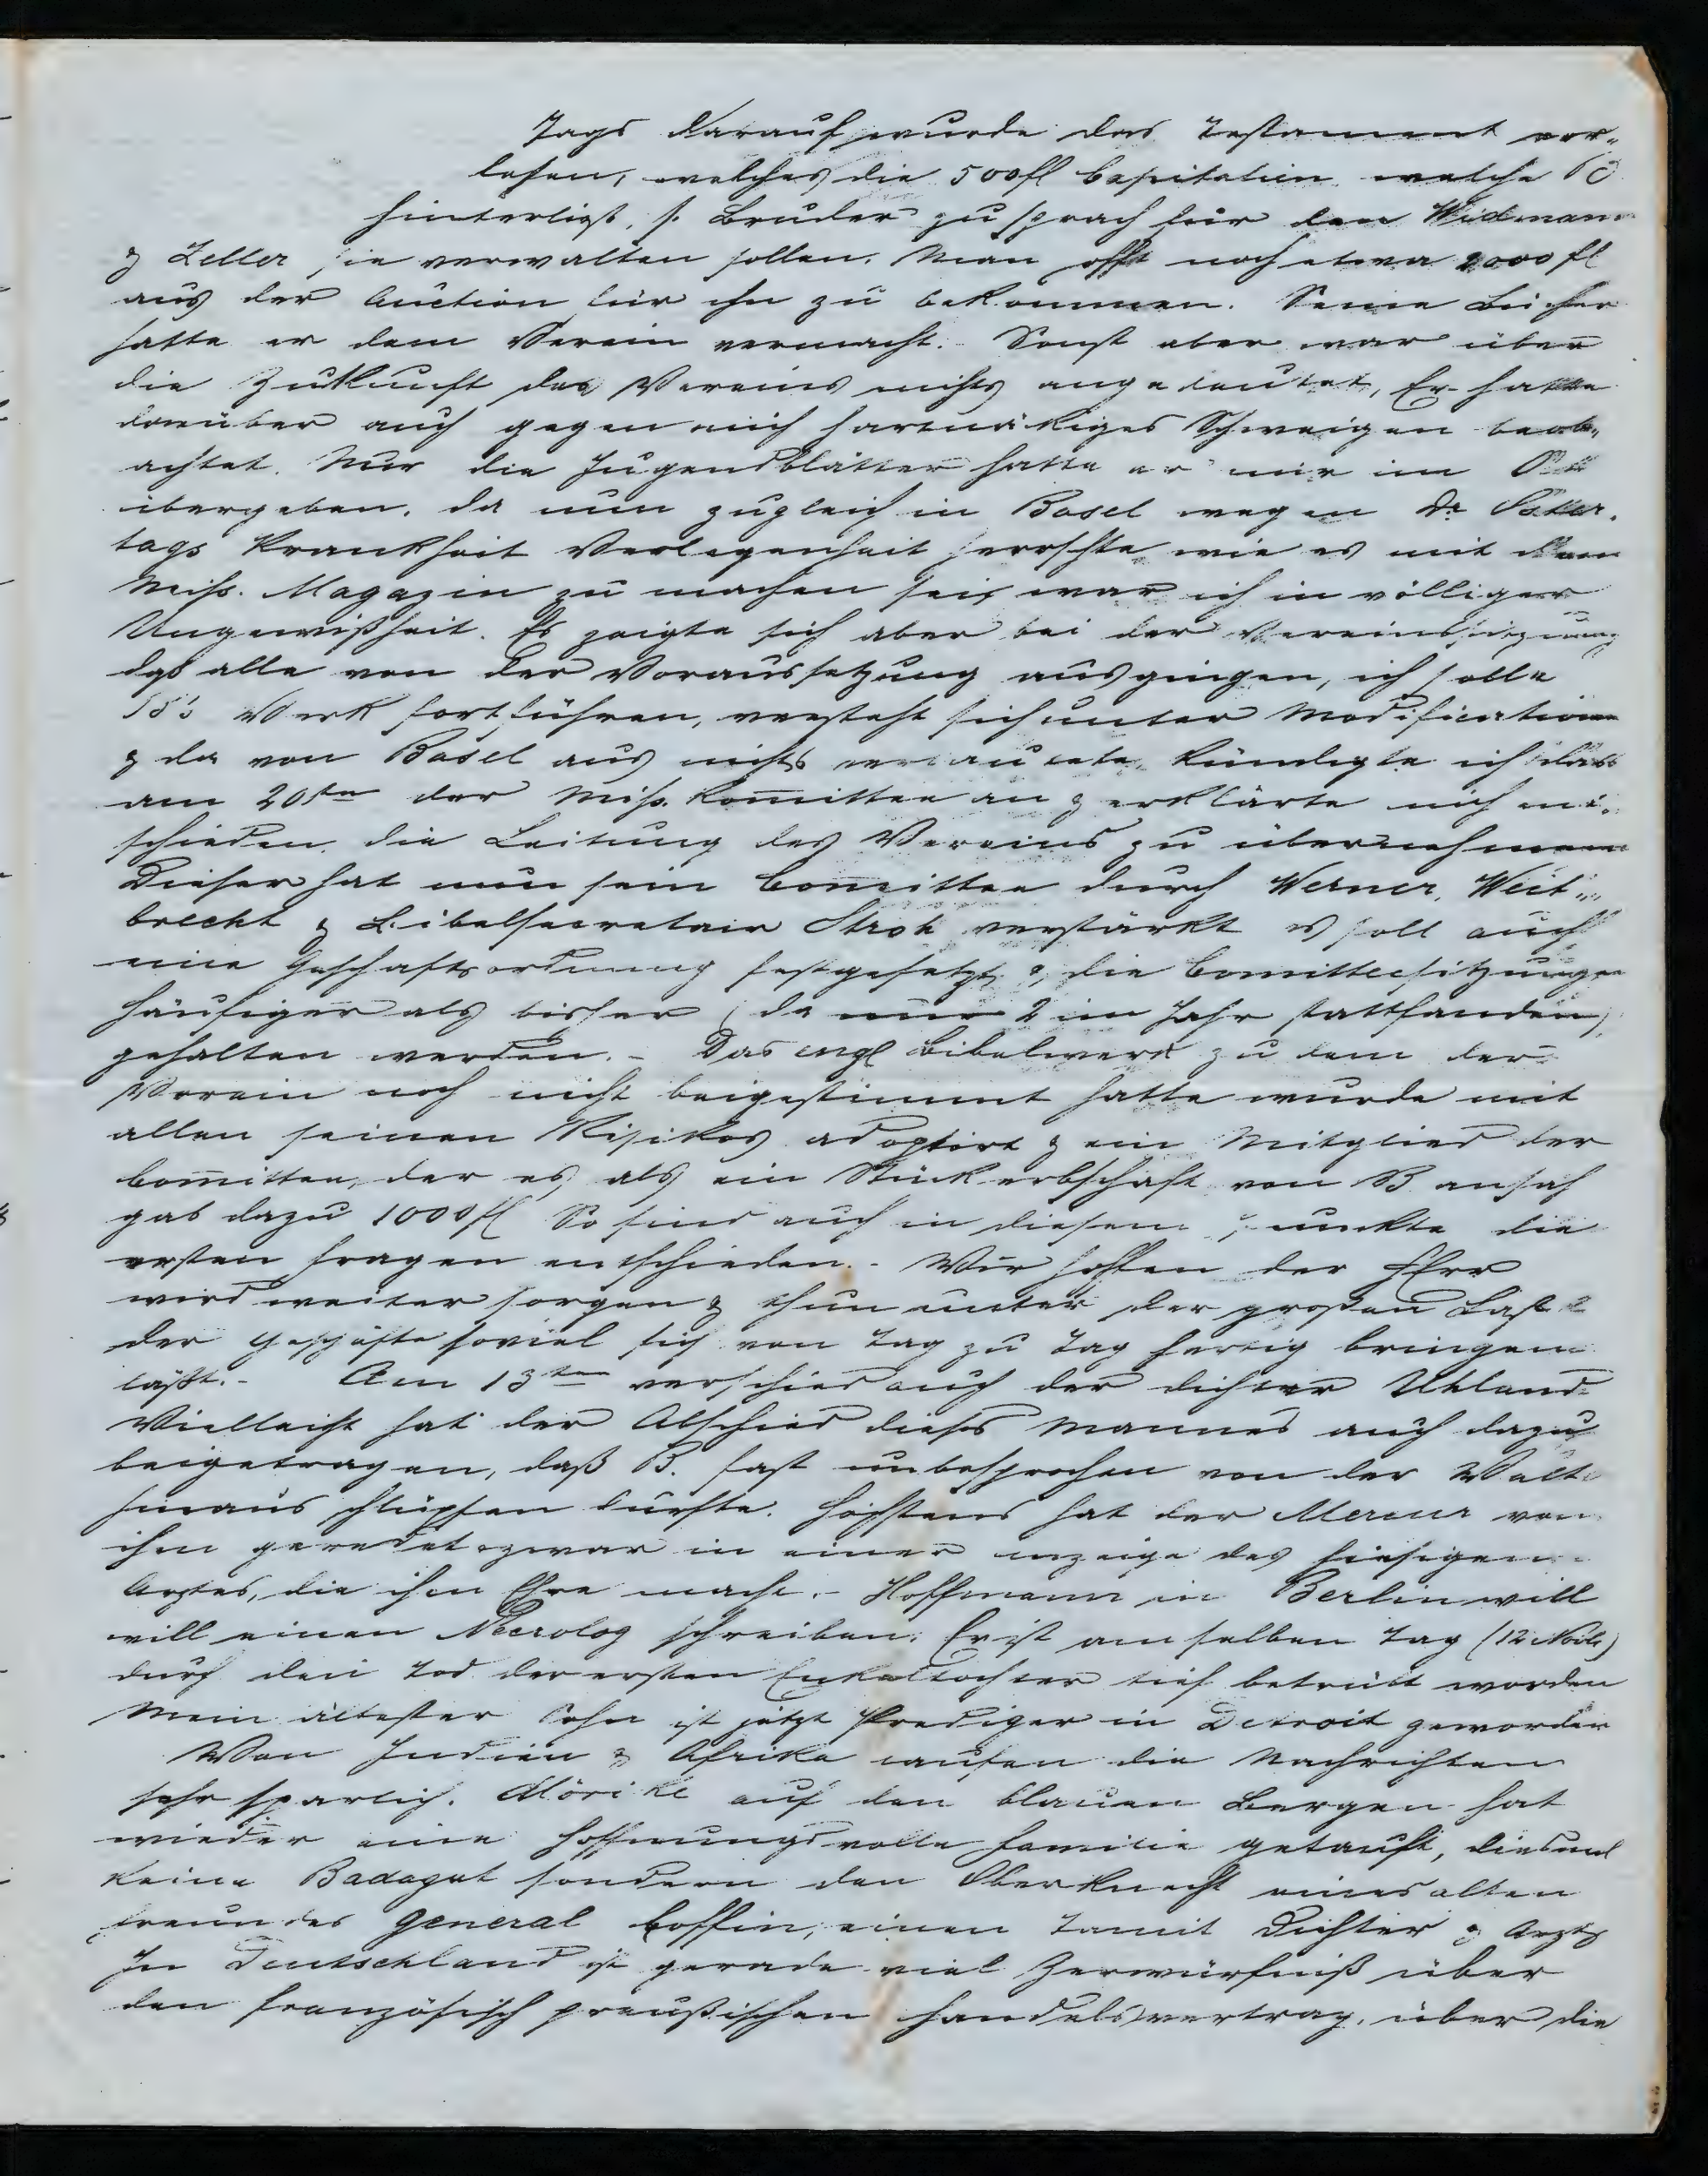 Tags darauf wurde das Testament ver-
lesen, welches die 500 fl Capitalien welche B
hinterließ, s. Bruder zusprach für den Widmann
& Zeller sie verwalten sollen. Man hofft noch etwa 2000 fl
aus der Auction für ihn zu bekommen. Seine Bücher
hatte er dem Verein vermacht. Sonst aber war über
die Zukunft des Vereins nichts angedeutet, Er hatte
darüber auch gegen mich hartnäkiges Schweigen beob-
achtet. Nur die Jugendblätter hatte er mir im Okt
übergeben. Da nun zugleich in Basel wegen Dr Oster-
tags Krankheit Verlegenheit herrschte wie es mit dem
Miss. Magazin zu machen sei, war ich in völliger
Ungewißheit. Es zeigte sich aber bei der Vereinssitzung
das alle von der Voraussetzung ausgingen, ich solle
B's Werk fortführen, versteht sich unter Modificationen
& da von Basel aus nichts verlautete, kündigte ich das
am 20sten der Miss. Komittee an & erklärte mich ent-
schieden die Leitung des Vereins zu übernehmen
Dieser hat nun sein Comittee durch Werner, Weit-
brecht & Bibelsecretair Stroh verstärkt es soll auch
eine Geschäftsordnung festgesetzt & die Comitteesitzungen
häufiger als bisher (da nur 2 im Jahr stattfanden)
gehalten werden. - Das engl Bibelwerk zu dem der
Verein noch nicht beigestimmt hatte wurde mit
allen seinen Risikos adoptirt & ein Mitglied der
Comittee, der es als ein Stück Erbschaft von B ansah
gab dazu 1000 fl So sind auch in diesem Punkte die
ersten Fragen entschieden. - Wir hoffen der HErr
wird weiter sorgen & thun unter der großen Last
der Geschäfte soviel sich von Tag zu Tag fertig bringen
läßt. - Am 13ten verschied auch der Dichter Uhland
Vielleicht hat der Abschied dieses Mannes auch dazu
beigetragen, daß B. fast unbesprochen von der Welt
hinaus schlüpfen durfte. Höchstens hat der Mercur von
ihm geredet & zwar in einer Anzeige des hiesigen
Arztes, die ihm Ehre macht. - Hoffmann in Berlin will
will einen Necrolog schreiben. Er ist am selben Tag (12 Novb)
durch den Tod der ersten Enkeltochter tief betrübt worden
Mein ältester Sohn ist jetzt Prediger in Detroit geworden
Von Indien & Afrika laufen die Nachrichten
sehr sparlich. Mörike auf den blauen Bergen hat
wieder eine hoffnungsvolle Familie getauft, diesmal
keine Badagat sondern den Oberknecht eines alten
Freundes General Coffin, einen Tamil Dichter & Arzt
In Deutschland ist gerade viel Zerwürfniß über
den französisch preußischen Handelsvertrag, über die